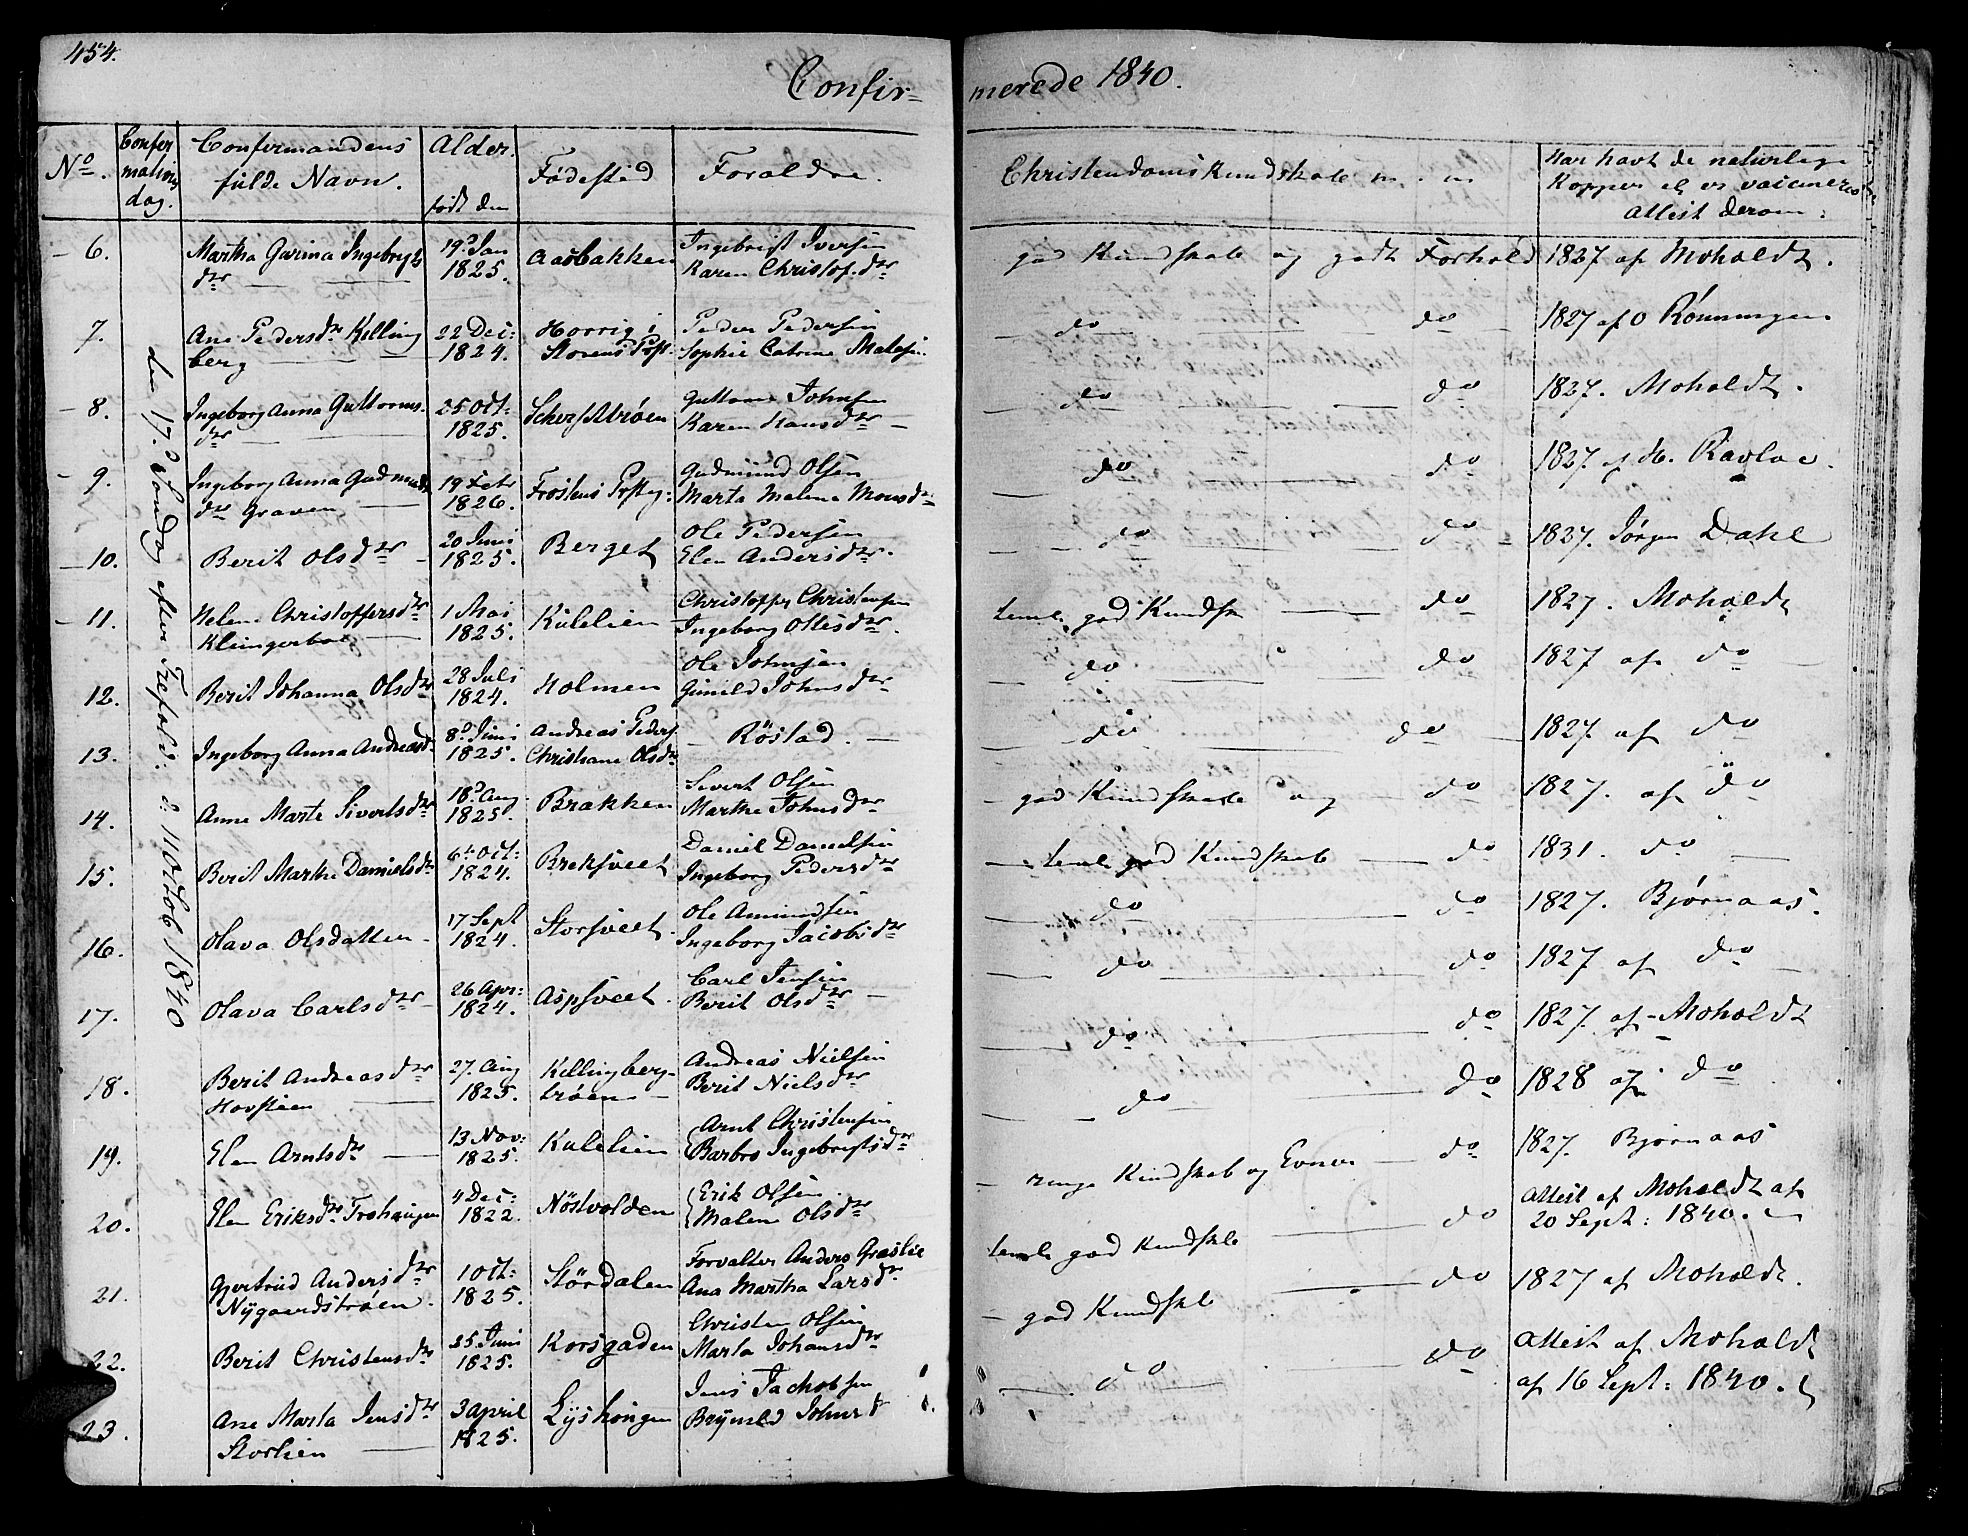 454.
Confir= merede 1840.
No. Confir mations dag. Confirmandens fulde Navn. Alder. født den Fødested Foraldre. Christendoms Kundskab m. m Har havt de naturlige Kopper el er vaccineret Attest derom.
den 17d Søndag efter Trefold: d. 11 Octob 1840
6. Martha Gurina Ingebrgts dtr 19d Jan 1825. Aasbakken Ingebrigt Iversen Karen Christof.dtr god Kundskab og godt Forhold 1827 af Moholdt.
7. Ane Pedersdtr Killing berg 22 Dec: 1824. Horrig i Størens Pgst Peder Pedersen Sophie Catrine do do 1827 af O Rønningen
8. Ingeborg Anna Guttorms. dtr 25 Oct: 1825. Guttorm Johnsen Karen Hansdtr do do 1827. Moholdt.
9. Ingeborg Anna Gudmunds dtr Graven 19 Febr 1826. Frostens Pgst Gudmund Olsen Marta Malena Monsdtr do do 1827 af H. Ravlo
10. Berit Olsdtr 20 Juni 1825. Berget Ole Pedersen Elen Andersdtr. do do 1827. Jørgen Dahl
11. Helene Christoffersdtr Klingerbæ 1 Mai 1825. Kulelien Christoffer Christensen Ingeborg Ollesdtr. teml. god Kundsk do 1827. Moholdt
12. Berit Johanna Olsdtr 28 Juli 1824. Holmen Ole Johnsen Gunild Johnsdtr do do 1827 af do
13. Ingeborg Anna Andreasd. 8d Juni 1825. Andreas Peders Christiane Olsdtr Röstad. do do 1827. af do
14. Anne Marte Sivertsdtr 18d Aug 1825. Brakken Sivert Olsen Marthe Johnsdtr god Kundskab og do 1827. af do
15. Berit Marthe Danielsdtr 6t Oct: 1824. Breksveet Daniel Danielsen Ingeborg Pedersdtr teml. god Kundskab do 1831. do
16. Olava Olsdatter 17 Sept 1824. Storsveet Ole Amundsen Ingeborg Jacobsdtr do do 1827. Bjørnaas.
17. Olava Carlsdtr 26 Apr: 1824. Aspsveet. Carl Jensen Berit Olsdtr do do 1827 af do
18. Berit Andreasdtr Hovsteen 27. Aug 1825. Killingberg- trøen Andreas Nielsen Berit Nielsdtr do do 1827. af Moholdt
19. Elen Arntsdtr 13 Nov: 1825. Kulelien Arnt Christensen Barbro Ingebrigtsdtr do do 1828 af do
20. Elen Eriksdtr Trøhaugen 4 Dec: 1822. Nöstvolden Erik Olsen Malen Olsdtr ringe Kundskab og Evner do 1827. Bjørnaas
21. Gjertrud Andersdtr Nygaardstrøen. 1 Oct: 1825. Størdalen Forvalter Anders Græslie Ana Martha Larsdtr. teml. god Kundskb do Attest af Moholdt af 20 Sept: 1840.
22. Berit Christensdtr 25 Juni 1825. Korsgaden Christen Olsen Marta Johansdtr god Kundskb do 1827 af Moholdt.
23. Ane Marta Jensdtr Storlien 3 April 1825. Lyshougen Jens Jachobsen Brynild Johnsd do do Attest af Moholdt af 16 Sept: 1840.